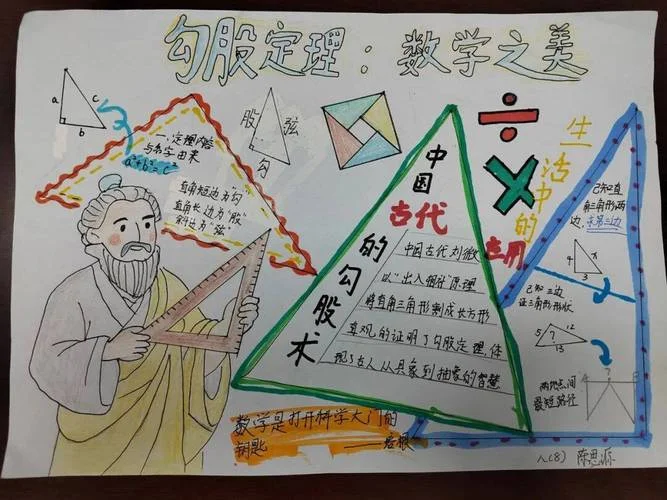 勾股定理：数学之美
a
c
b
一.定理内容
与名字由来
a²+b²=c²
直角短边为"勾"
直角长边为"股"
斜边为"弦"
股
弦
勾
中国
古代
的勾股术
中国古代刘徽
以"出入相补"原理
将直角三角形剩成长方形
直观的证明了勾股定理,体
现了古人从具象到抽象的智慧
÷
×
生活中的
应用
已知直
角三角形两
边,求第三边
4
x
3
已知三边
证三角形形状
5
?
12
13
两地之间
最短路径
?
数学是打开科学大门的
钥匙
——培根
八(8) 陈思源